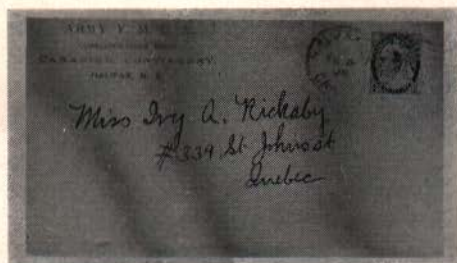 ARMY Y. M. C. A.
CANADIAN CONTINGENT,
HALIFAX, N. S.
Miss Ivy A. Rickaby
#339 St Johns st
Quebec